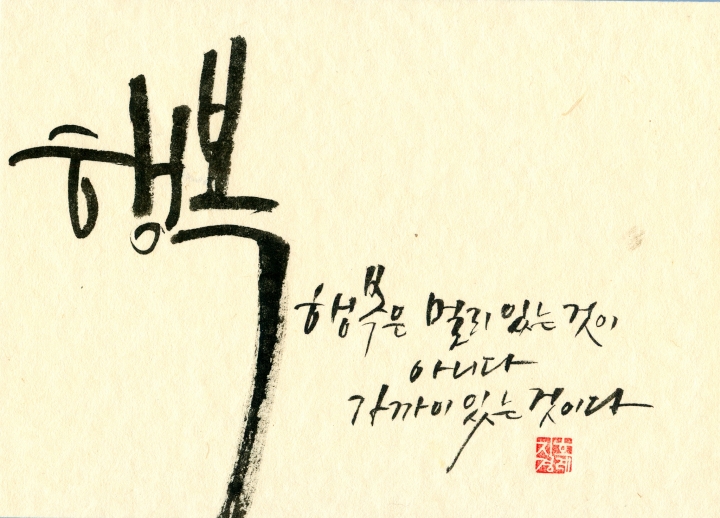 행복
행복은 멀리 있는 것이
아니다
가까이 있는 것이다